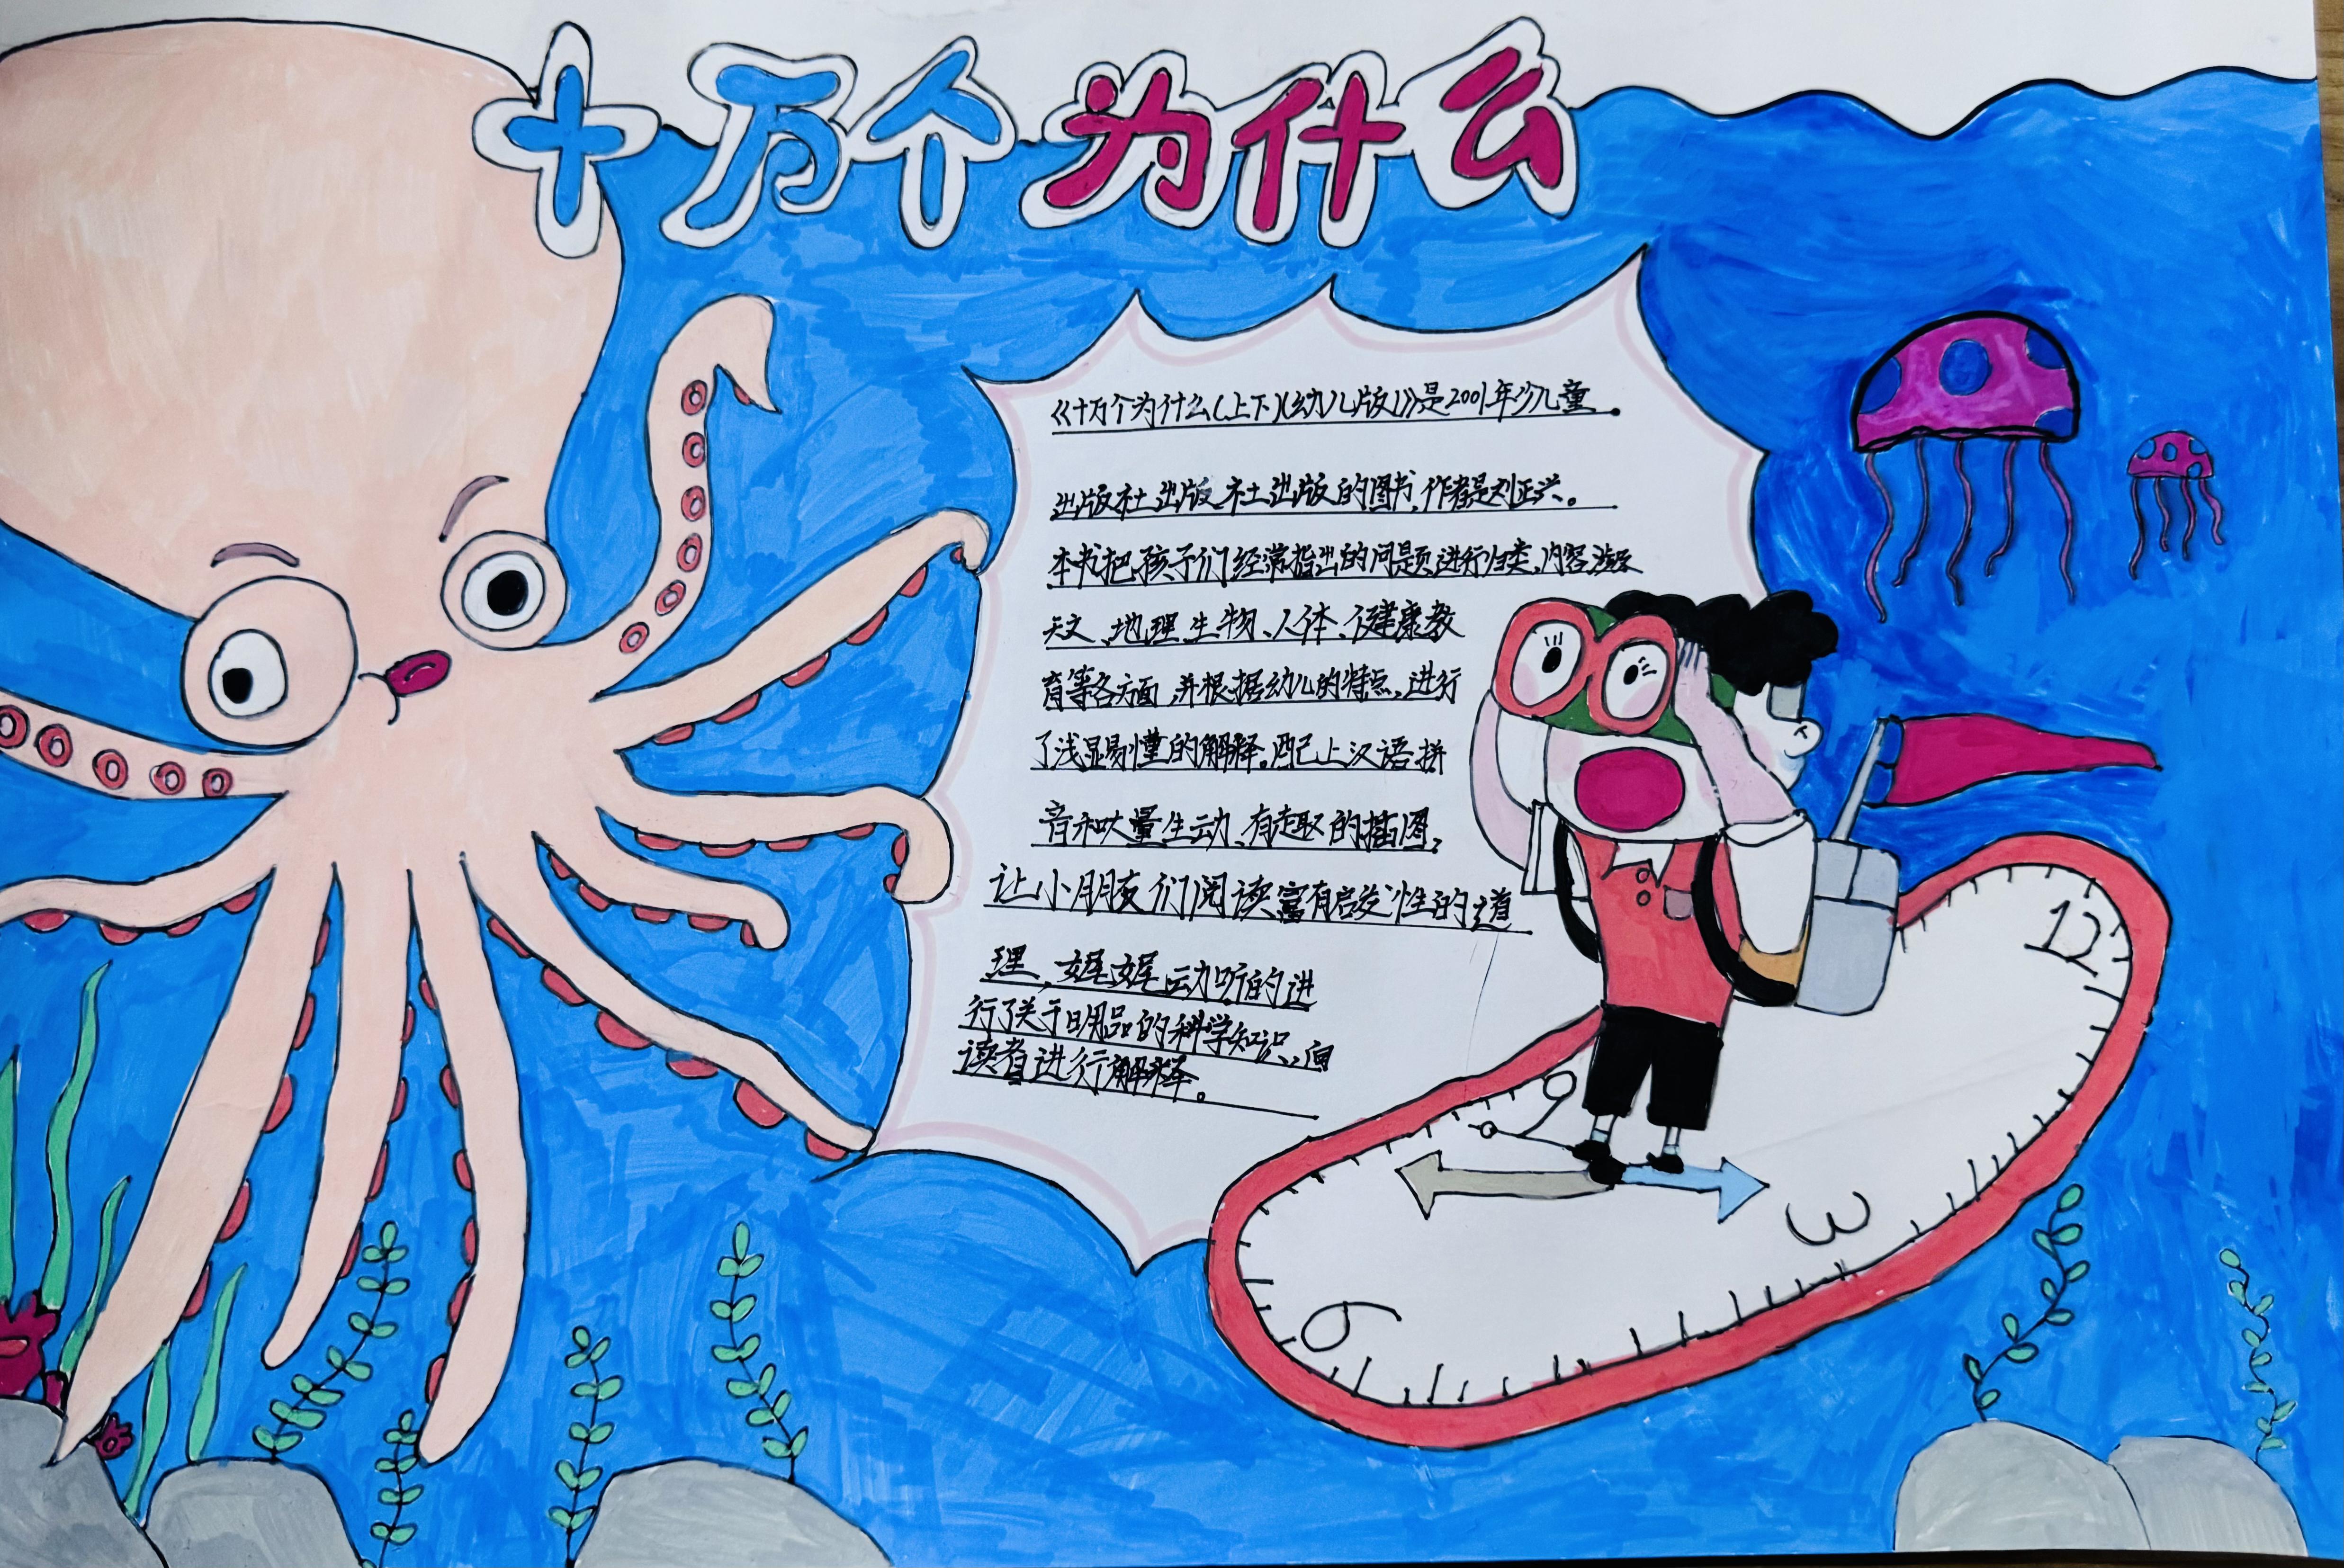 十万个为什么
《十万个为什么(上下)(幼儿版)》是2001年少儿童
出版社出版社出版的图书,作者是刘正兴。
本书把孩子们经常指出的问题进行归类,内容涉及
天文、地理、生物、人体、健康教
育等各方面,并根据幼儿的特点,进行
了浅显易懂的解释。配上汉语拼
音和大量生动、有趣的插图,
让小朋友们阅读富有启发性的道
理、娓娓动听的进
行了关于明品的科学知识,向
读者进行解释。
12
9
3
6